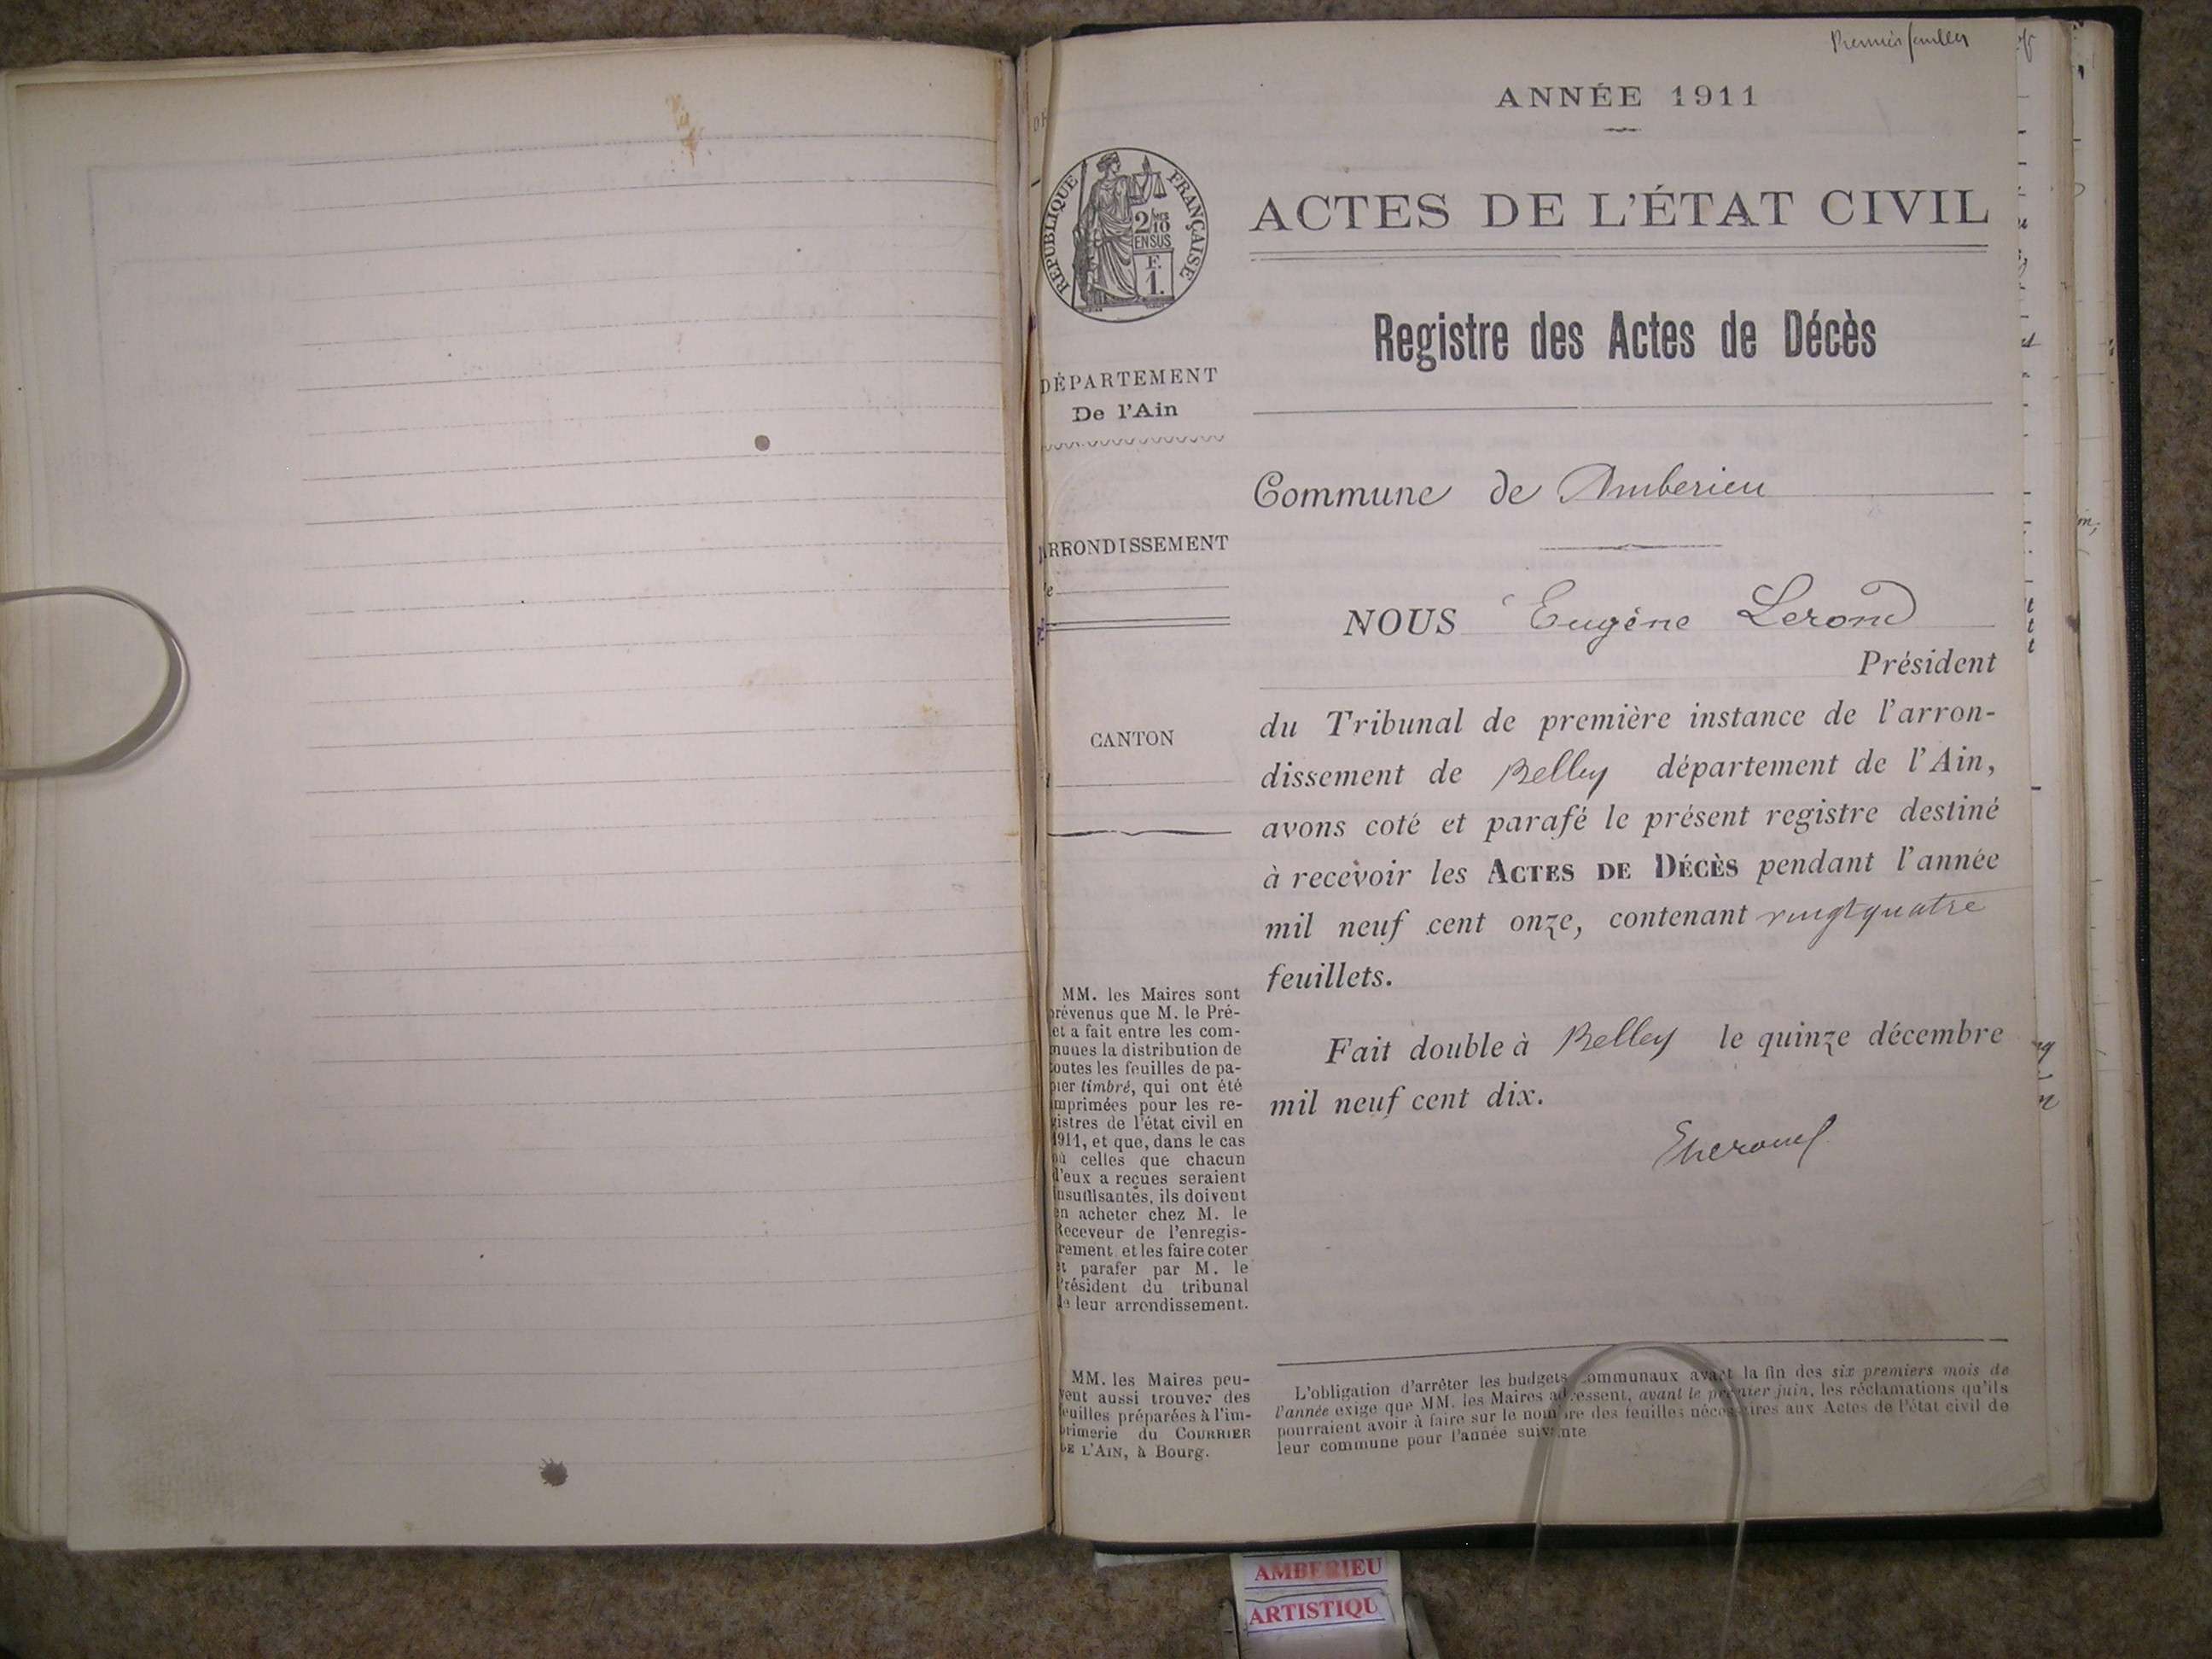 Premier feuillet
ANNÉE 1911
RÉPUBLIQUE FRANÇAISE
2/10
EN SUS
F.
1.
ACTES DE L'ÉTAT CIVIL
Registre des Actes de Décès
DÉPARTEMENT
De l'Ain
Commune de Amberieu
ARRONDISSEMENT
NOUS Eugène Lerond
Président
du Tribunal de première instance de l'arron-
dissement de Belley département de l'Ain,
avons coté et parafé le présent registre destiné
à recevoir les ACTES DE DÉCÈS pendant l'année
mil neuf cent onze, contenant vingt quatre
feuillets.
Fait double à Belley le quinze décembre
mil neuf cent dix.
CANTON
MM. les Maires sont
prévenus que M. le Pré-
et a fait entre les com-
munes la distribution de
toutes les feuilles de pa-
pier timbré, qui ont été
imprimées pour les re-
gistres de l'état civil en
1911, et que, dans le cas
où celles que chacun
d'eux a reçues seraient
insuffisantes, ils doivent
en acheter chez M. le
Receveur de l'enregis-
trement et les faire coter
et parafer par M. le
Président du tribunal
de leur arrondissement.
MM. les Maires peu-
vent aussi trouver des
feuilles préparées à l'im-
primerie du COURRIER
DE L'AIN, à Bourg.
L'obligation d'arrêter les budgets communaux avant la fin des six premiers mois de
l'année exige que MM. les Maires adressent, avant le premier juin, les réclamations qu'ils
pourraient avoir à faire sur le nombre des feuilles nécessaires aux Actes de l'état civil de
leur commune pour l'année suivante
AMBERIEU
ARTISTIQU